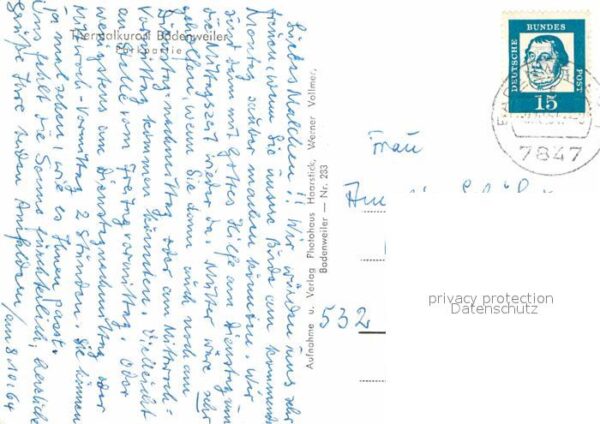 Thermalkurort Badenweiler
Kurpartie
Liebe Malchen!! Wir würden uns sehr
freuen, wenn Sie unsere Bude am kommenden
Montag sauber machen können. Wir
sind dann mit Gottes Hilfe am Dienstag um
die Mittagszeit wieder da. Mutter wäre sehr
geholfen, wenn Sie dann auch noch am
Dienstag-nachmittag oder am Mittwoch-
Vormittag kommen könnten. Vielleicht
an Stelle von Freitagvormittag. Oder
wenigstens am Dienstagnachmittag oder
Mittwoch-Vormittag 2 Stunden. Sie können
ja mal sehen, wie es Ihnen passt.
Uns fehlt die Sonne fürchterlich, herzliche
Grüße Ihre beiden
am 8.10.64
Aufnahme u. Verlag Photohaus Haarstick, Werner Vollmer,
Badenweiler — Nr. 233
DEUTSCHE BUNDESPOST
15
7847
Frau
532
privacy protection
Datenschutz